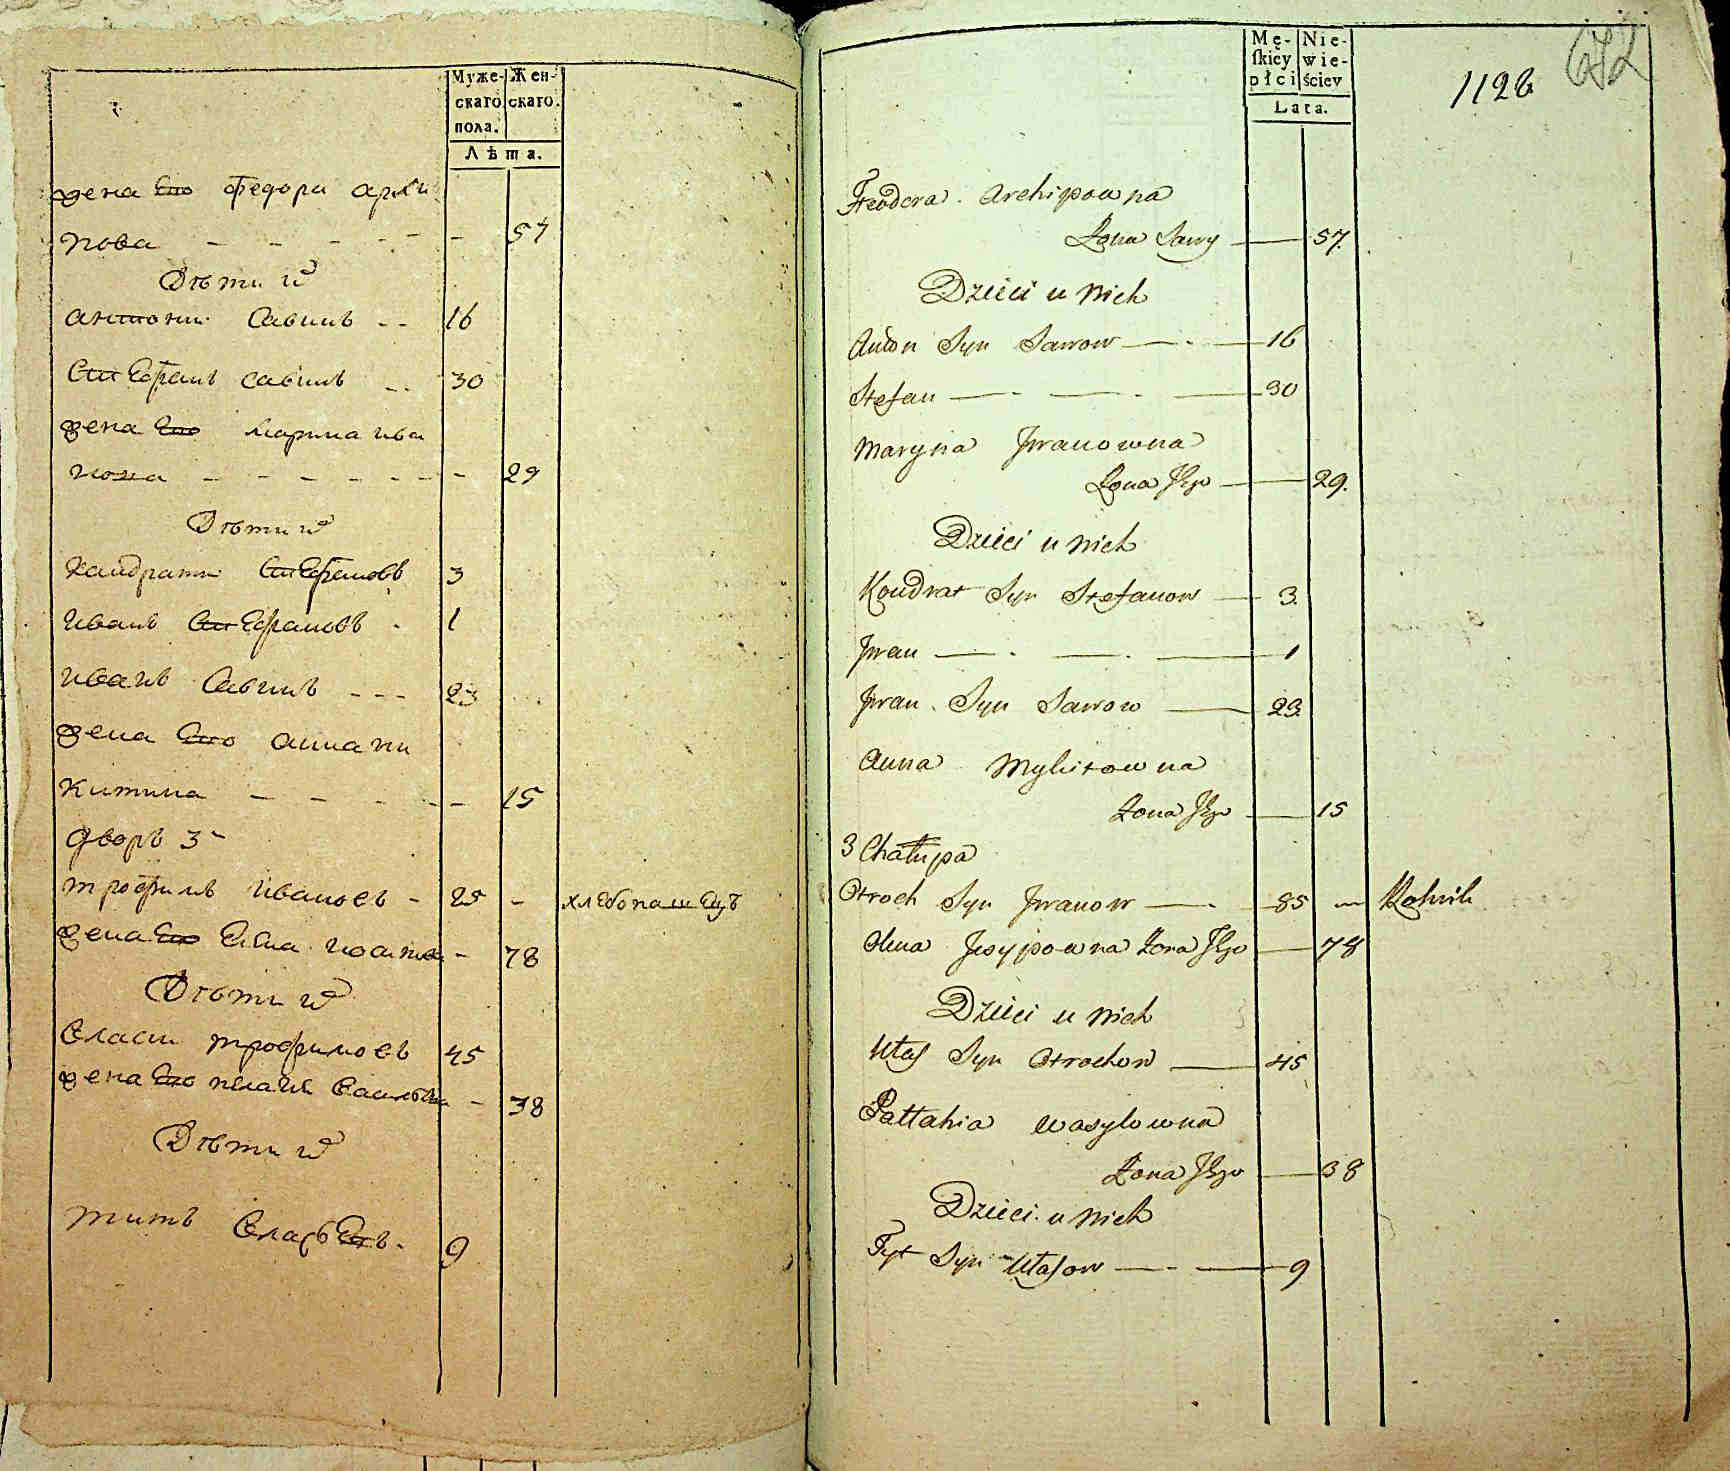 Муже-
скаго
пола.
Жен-
скаго.
Лѣта.
жена Его Федора архи
пова - - - - - - 57
Дѣти ихъ
антони Савинъ - - 16
Стефанъ савинъ - - 30
жена Его марина ива
нова - - - - - - - 29
Дѣти ихъ
кандрати Стефановъ 3
иванъ Стефановъ - 1
иванъ Савинъ - - - 23
жена Его анна ни
китина - - - - - 15
дворъ 3-
трофимъ ивановъ - 85 - хлебопашецъ
жена Его Елена - 78
Дѣти ихъ
Власи трофимовъ 45
жена Его пелагея Васильева - 38
Дѣти ихъ
титъ Власовъ. 9
Mę-
skiey
płci
Nie-
wie-
ściey
Lata.
1128
672
Feodora Archipowna
Żona Sawy — 57.
Dzieci u nich
Anton Syn Sawow — . — 16
Stefan — . — . — 30
Maryna Jwanowna
Żona Jego — 29.
Dzieci u nich
Kondrat Syn Stefanow — 3.
Jwan — . — . — 1
Jwan Syn Sawow — 23.
Anna Mykitowna
Żona Jego — 15
3 Chałupa
Otroch Syn Jwanow — . 85 — Rolnik
Olena Jesypowna Żona Jego — 78
Dzieci u nich
Ułas Syn Otrochow — 45
Pałłahia Wasylowna
Żona Jego — 38
Dzieci u nich
Tyt Syn Ułasow — . — 9